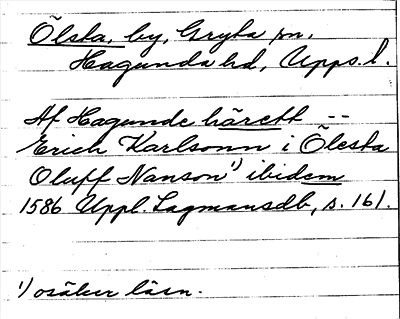 Õlsta, by, Gryta sn,
Hagunda hd, Upps. l.
Af Hagunde härett --
Erich Karlsonn i Õlesta
Oluff Nanson¹) ibidem
1586 Uppl. Lagmansdb, s. 161.
¹) osäker läsn.